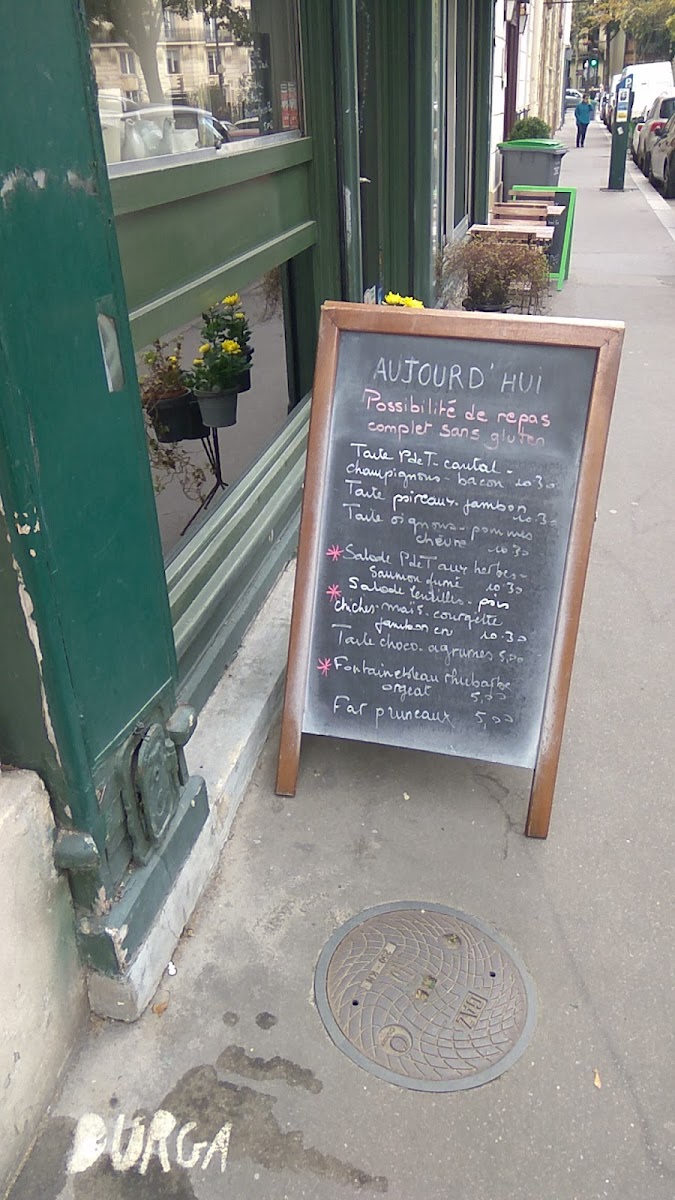 AUJOURD'HUI
Possibilité de repas
complet sans gluten
Tarte P de T - cantal -
champignons - bacon 10.30
Tarte poireaux - jambon
10.30
Tarte oignons - pommes
chèvre 10.30
* Salade P de T aux herbes -
saumon fumé 10.30
* Salade lentilles - pois
chiches - maïs - courgette
jambon cru 10.30
Tarte choco - agrumes 5,00
* Fontainebleau rhubarbe
orgeat 5,00
Far pruneaux 5,00
DURGA